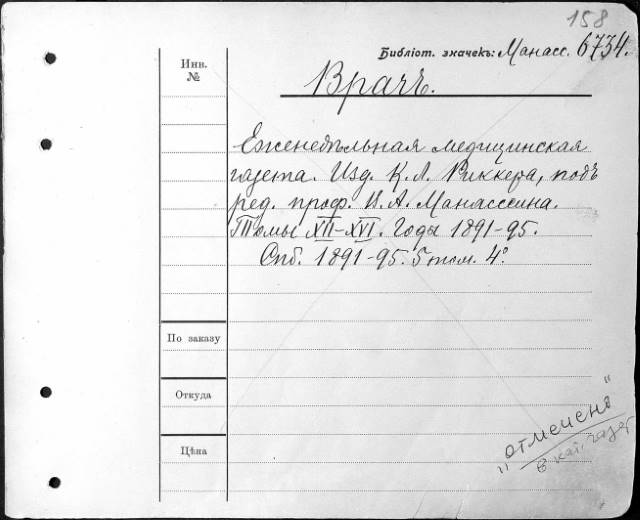 158
Библіот. значекъ: Манасс. 6734.
Инв.
№
Врачъ.
Еженедѣльная медицинская
газета. Изд. К. Л. Риккера, подъ
ред. проф. В. А. Манассеина.
Томы XII–XVI. Годы 1891–95.
Спб. 1891–95. 5 том. 4º
По заказу
Откуда
Цѣна
"отменено"
в кат. газет